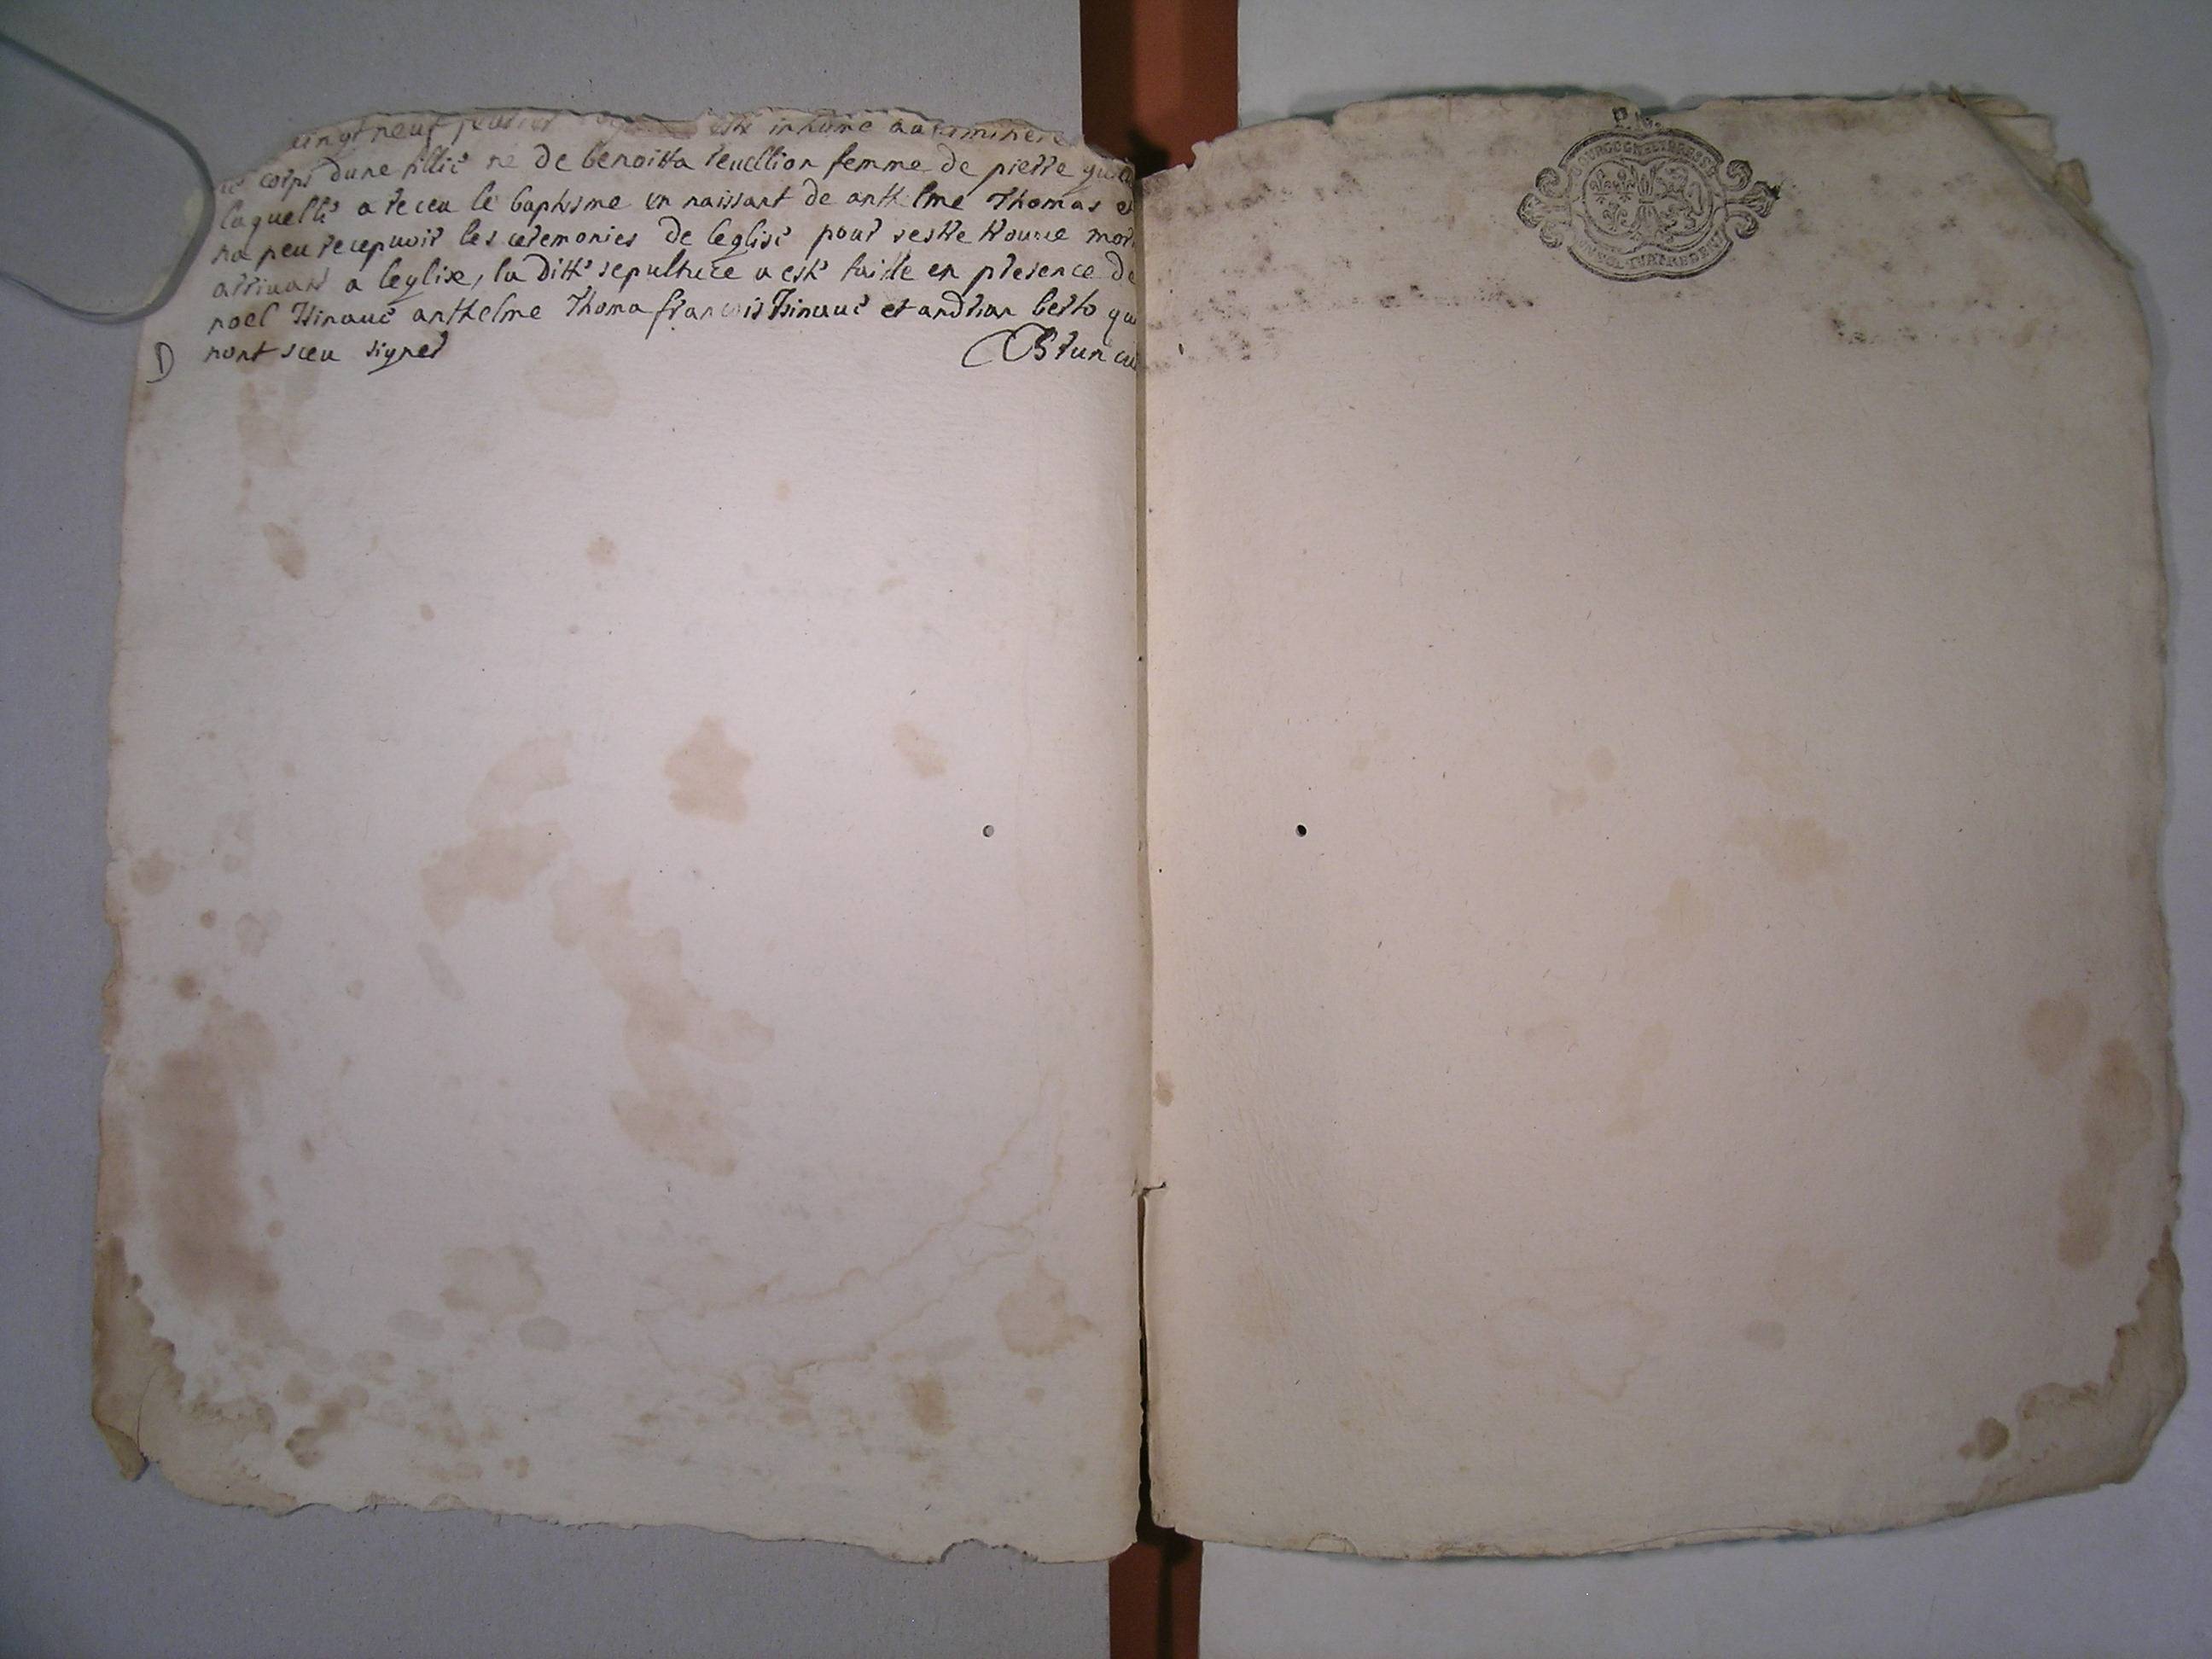 uingt neuf este inhume au siminere
le corps dune fillie ne de benoitta reuellion femme de pierre
laquelle a receu le baptisme en naissant de anthelme Thomas et
na peu recepuoir les ceremonies de leglise pour sestre trouue mor
arriuant a leglise, la ditte sepulture a este faitte en presence de
noel Tsinaue anthelme Thoma francois Tsinaue et andrian betto qui
nont sceu signer
D
BOURGOGNE ET BRESSE